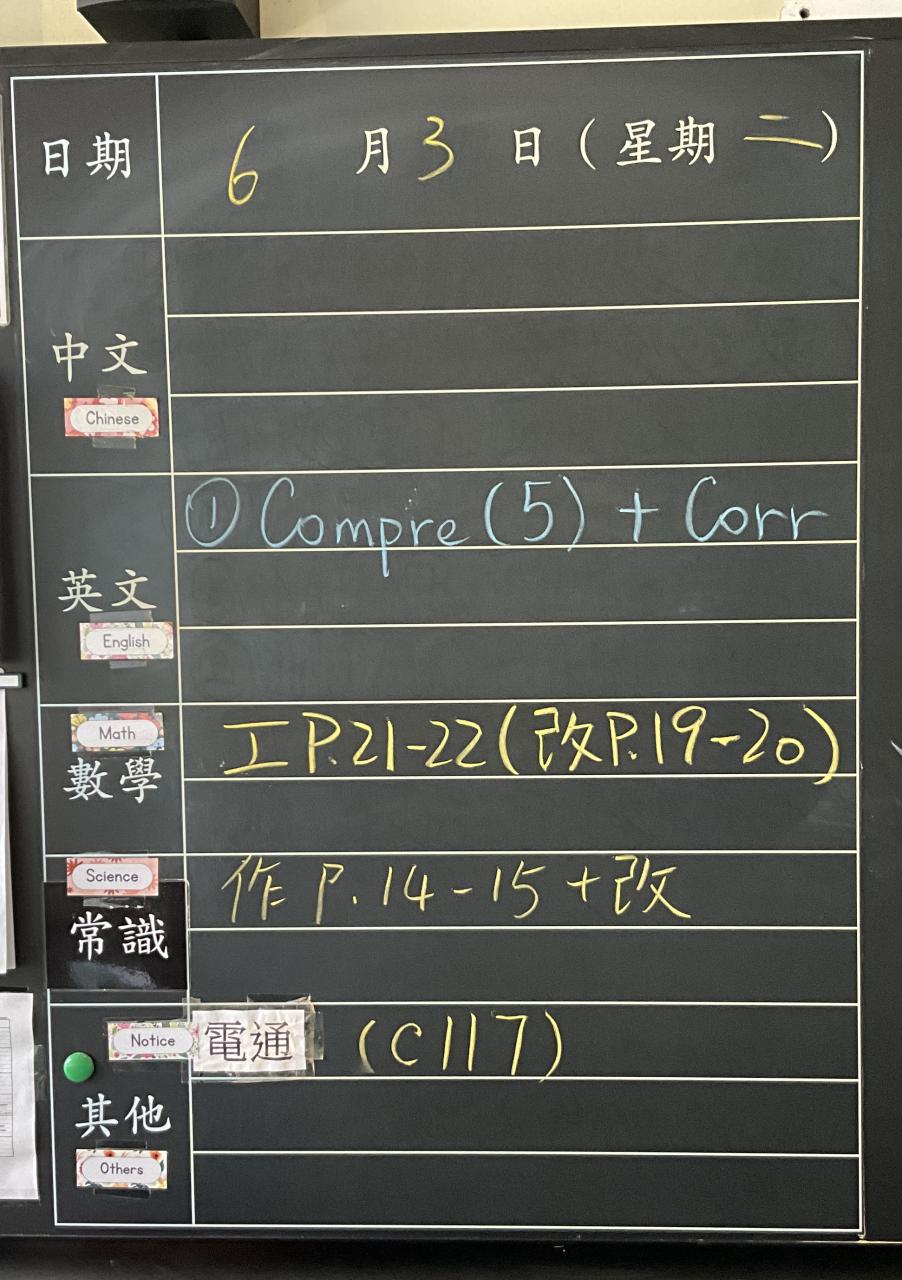 日期 6月3日(星期二)
中文
Chinese
① Compre(5) + Corr
英文
English
Math
工P.21-22(改P.19-20)
數學
Science
作P.14-15+改
常識
Notice 電通 (C117)
其他
Others